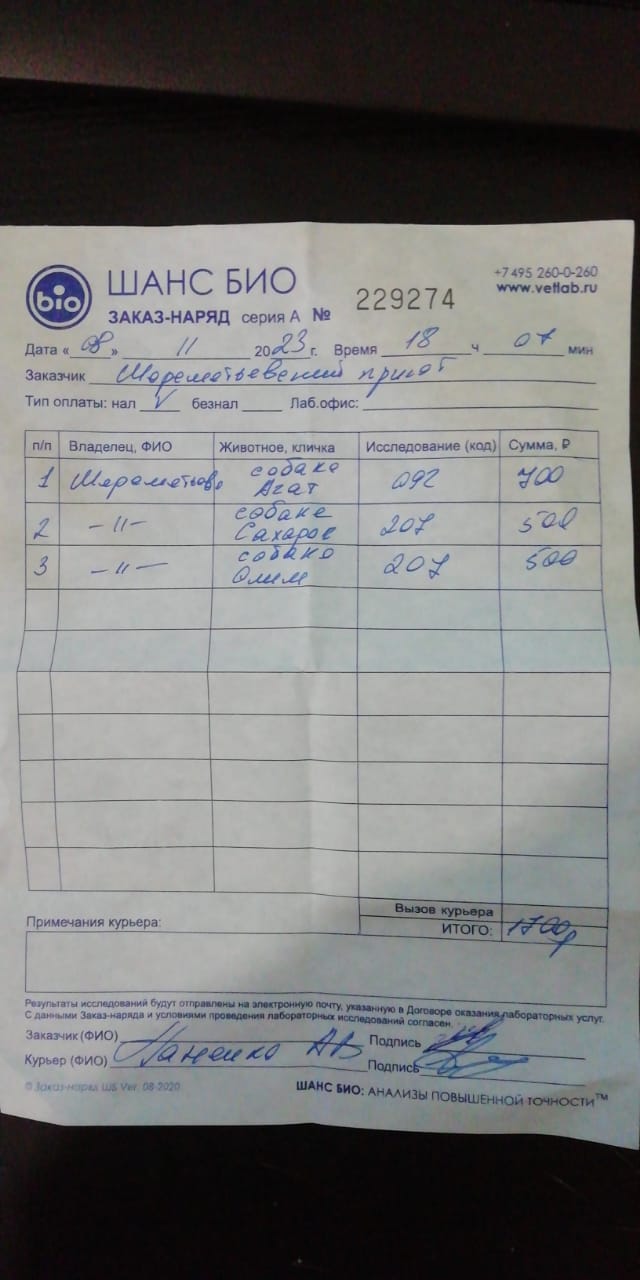 bio
ШАНС БИО
ЗАКАЗ-НАРЯД серия А № 229274
+7 495 260-0-260
www.vetlab.ru
Дата «08» 11 2023 г. Время 18 ч 07 мин
Заказчик Шереметьевский приют
Тип оплаты: нал V безнал Лаб.офис:
п/п Владелец, ФИО Животное, кличка Исследование (код) Сумма, ₽
1 Шереметьево собака Агат 092 700
2 –//– собака Сахарок 207 500
3 –//– собака Олим 207 500
Вызов курьера
Примечания курьера: ИТОГО: 1700р
Результаты исследований будут отправлены на электронную почту, указанную в Договоре оказания лабораторных услуг.
С данными Заказ-наряда и условиями проведения лабораторных исследований согласен.
Заказчик (ФИО) Подпись
Курьер (ФИО) АВ Подпись
© Заказ-наряд ШБ Ver. 08-2020
ШАНС БИО: АНАЛИЗЫ ПОВЫШЕННОЙ ТОЧНОСТИ™